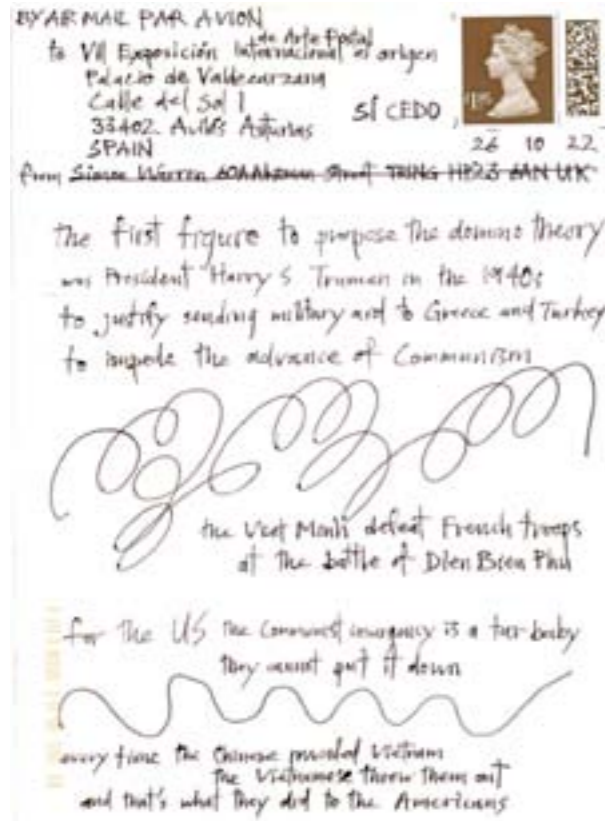 BY AIR MAIL PAR AVION
de Arte Postal
to VII Exposición Internacional el origen
Palacio de Valdecarzana
Calle del Sol 1
33402 Avilés Asturias
SPAIN
SÍ CEDO
26 10 22
from Simon Warren Street TRING HP23 6AN UK
the first figure to purpose the domino theory
was President Harry S Truman in the 1940s
to justify sending military aid to Greece and Turkey
to impede the advance of Communism
the Viet Minh defeat French troops
at the battle of Dien Bien Phu
for the US the Communist insurgency is a tar-baby
they cannot put it down
every time the Chinese invaded Vietnam
the Vietnamese threw them out
and that's what they did to the Americans